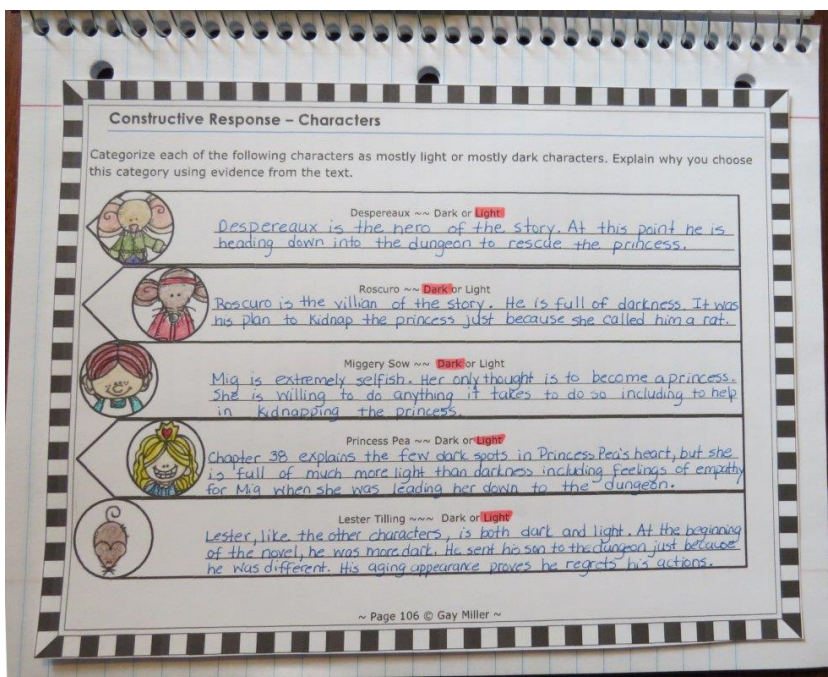 Constructive Response – Characters
Categorize each of the following characters as mostly light or mostly dark characters. Explain why you choose
this category using evidence from the text.
Despereaux ~~ Dark or Light
Despereaux is the hero of the story. At this point he is
heading down into the dungeon to rescue the princess.
Roscuro ~~ Dark or Light
Roscuro is the villian of the story. He is full of darkness. It was
his plan to kidnap the princess just because she called him a rat.
Miggery Sow ~~ Dark or Light
Mig is extremely selfish. Her only thought is to become a princess.
She is willing to do anything it takes to do so including to help
in kidnapping the princess.
Princess Pea ~~ Dark or Light
Chapter 38 explains the few dark spots in Princess Pea's heart, but she
is full of much more light than darkness including feelings of empathy
for Mig when she was leading her down to the dungeon.
Lester Tilling ~~~ Dark or Light
Lester, like the other characters, is both dark and light. At the beginning
of the novel, he was more dark. He sent his son to the dungeon just because
he was different. His aging appearance proves he regrets his actions.
~ Page 106 © Gay Miller ~